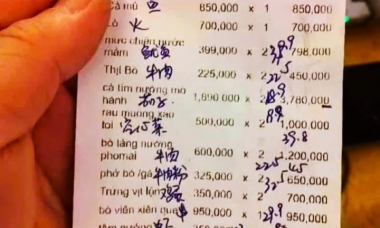 Cá mú 鱼 850,000 x 1 850,000
Lò 火 700,000 x 1 700,000
mực chiên nước
mắm 鱿鱼 399,000 x 2 39.9 798,000
Thịt Bò 牛肉 225,000 x 2 22.5 450,000
cà tím nướng mỡ
hành 茄子 1,890,000 x 2 3,780,000
rau muống xào
tỏi 空心菜 500,000 x 2 1,000,000
39.8
bò lăng nướng
phomai 牛肉 600,000 x 2 1,200,000
phở bò /gà 牛肉粉 325,000 x 2 32.5 650,000
Trưng vịt lộn 350,000 x 2 700,000
bò viên xiên que 950,000 x 129.9 950,000